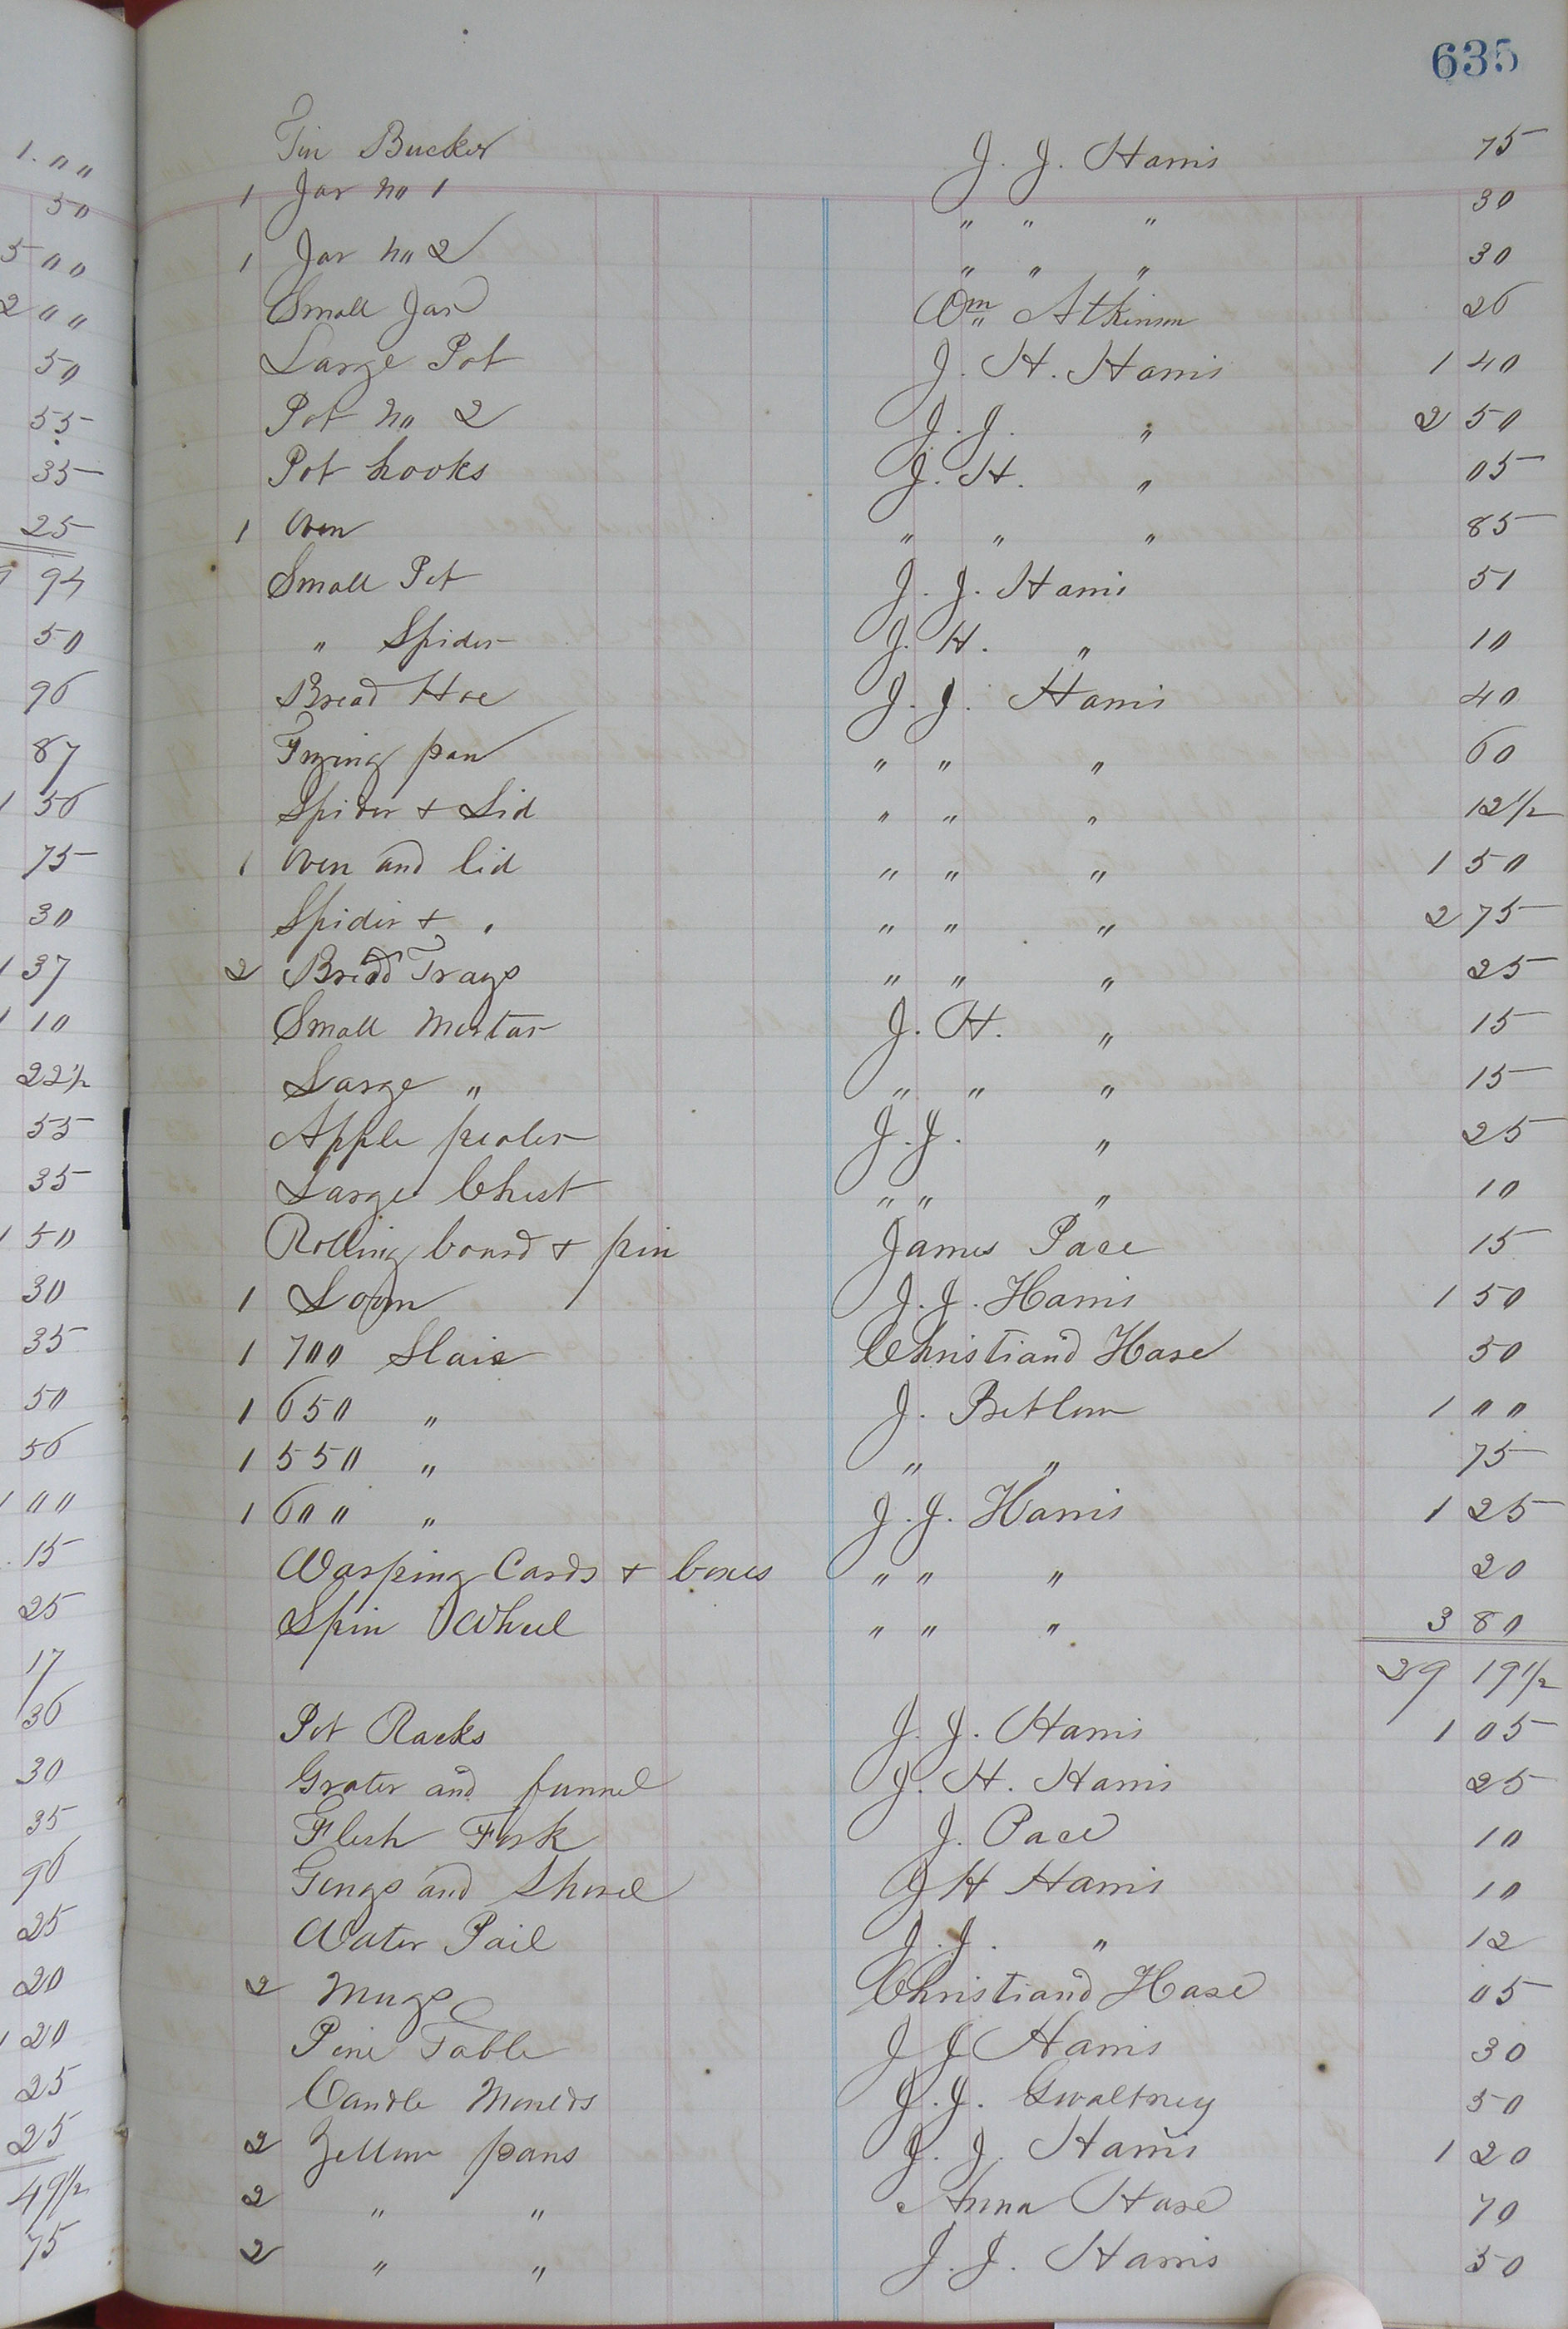 635
Tin Bucket J. J. Harris 75
1 Jar no 1 " " " 30
1 Jar no 2 " " " 30
Small Jar Wm Atkinson 26
Large Pot J. H. Harris 1 40
Pot no 2 J. J. " 2 50
Pot hooks J. H. " 05
1 Oven " " " 85
Small Pot J. J. Harris 51
" Spider J. H. " 10
Bread Hoe J. J. Harris 40
Frying pan " " " 60
Spider + Lid " " " 12 1/2
1 Oven and lid " " " 1 50
Spider + " " " " 2 75
2 Bread Trays " " " 25
Small Mortar J. H. " 15
Large " " " " 15
Apple pealer J. J. " 25
Large Chest " " " 10
Rolling board + pin James Pace 15
1 Loom J. J. Harris 1 50
1 700 Slaie Christiand Hase 50
1 650 " J. 1 00
1 550 " " " 75
1 600 " J. J. Harris 1 25
Warping Cards + boxes " " " 20
Spin Wheel " " " 3 80
29 19 1/2
Pot Racks J. J. Harris 1 05
Grater and funnel J. H. Harris 25
Flesh Fork J. Pace 10
Tongs and Shovel J H Harris 10
Water Pail J. J. " 12
2 Mugs Christiand Hase 05
Pine Table J J Harris 30
Candle Moulds J. J. Gwaltney 50
2 Yellow pans J. J. Harris 1 20
2 " " Anna Hase 70
2 " " J. J. Harris 50
1.00
50
5 00
2 00
50
55
35
25
94
50
96
87
1 56
75
30
1 37
1 10
22 1/2
55
35
1 50
30
35
50
56
1 00
15
25
17
36
30
35
96
25
20
1 20
25
25
49 1/2
75